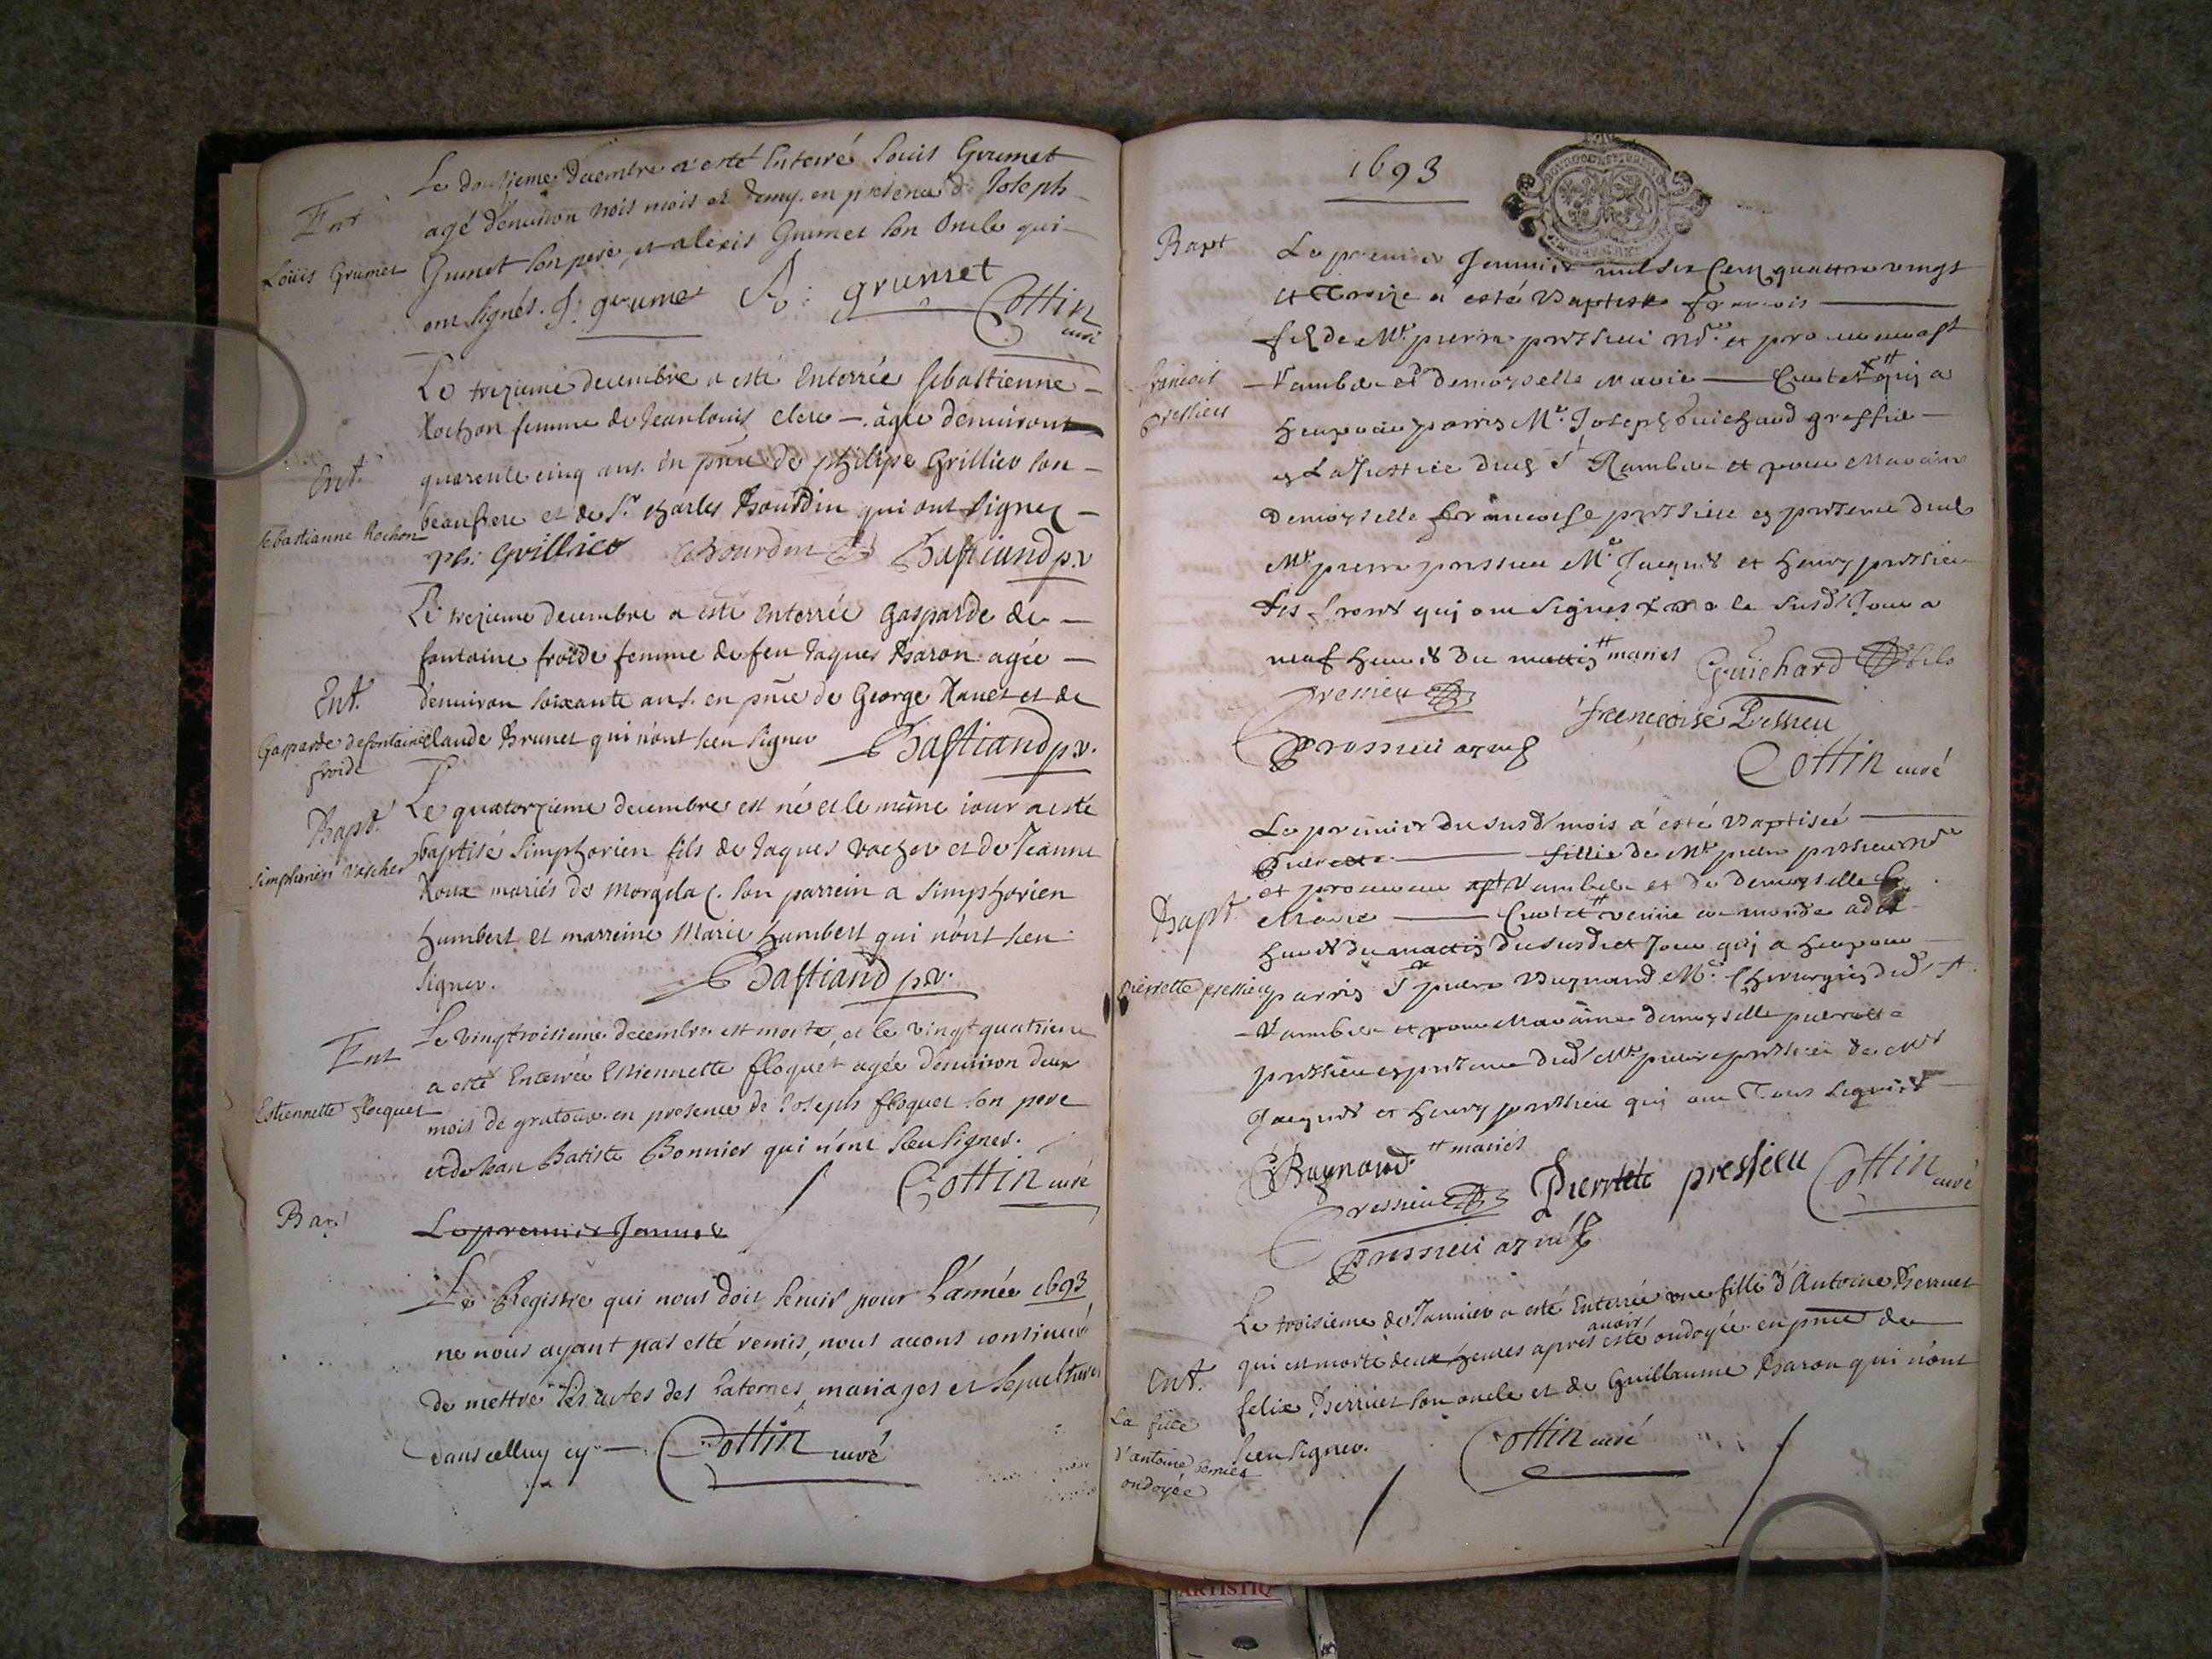 Le douzieme decembre a esté Enterré Louis Grumet
Ent
agé d'environ trois mois et demy. en presence de Joseph
Louis Grumet
Grumet son pere, et alexis Grumet son oncle qui
ont signés. J: grumet A: grumet Cottin
curé
Le trezieme decembre a esté Enterrée sebastienne
Rochon femme de Jean louis clerc - agée d'environ
Ent.
quarente cinq ans. en pnce de philipe Grillier son
sebastianne Rochon
beaufrere et de Sr. charles Bourdin qui ont signez
Ph: Grillier Bourdin Bastiand p.v
Le trezieme decembre a esté Enterrée Gasparde de
fontaine froide femme de feu Jaques Baron agée
Ent.
d'environ soixante ans. en pnce de George Ranet et de
Gasparde defontaine froide
claude Brunet qui n'ont sceu signer Bastiand p.v.
Bapt.
Le quatorzieme decembre est né et le même iour a esté
simphorien vacher
baptisé simphorien fils de Jaques vacher et de Jeanne
Roux mariés de morgelas. son parrein a simphorien
humbert et marreine Marie humbert qui n'ont sceu
signer. Bastiand p.v.
Ent
Le vingtroisieme decembre est morte, et le vingt quatrieme
a esté Enterrée Estiennette floquet agée d'environ deux
Estiennette flocquet
mois de gratoux. en presence de Joseph floquet son pere
et de Jean Batiste Bonnier qui n'ont sceu signer.
Cottin curé
Bap
Le premier Janvier
Le Registre qui nous doit servir pour l'année 1693
ne nous ayant pas esté remis, nous avons continué
de mettre les actes des Baternes, mariages et sepultures
dans celluy cy - Cottin curé
1693
Bapt
Le premier Jenvier mil six cent quattre vingt
et treize a esté Baptisé francois
fils de Mr. pierre pressieu nore. et pro
francois pressieu
Rambert et demoyselle marie Custet qui a
heu pour parrin Me. Joseph Guichard greffier
en La Justice dud St Rambert et pour Maraine
Demoyselle francoise pressieu en presence dud
Mr. pierre pressieu Me. Jacques et henry pressieu
ses freres qui ont signes le susd Jour a
neuf heures du mattin mariés Guichard
Pressieu francoise Pressieu
Pressieu ayné Cottin curé
Le premier du susd mois a esté Baptisée
Pierette fillie de Mr. pierre pressieu nre
Bapt.
et procureur Rambert et de demoyselle
Marie Custet venue au monde a dix
heures du mattin du susdict Jour qui a heu pour
pierrette pressieu
parrin Sr piere Bugnand Me. Chirurgien dud St
Rambert et pour Maraine demoyselle pierette
pressieu en presence dud Mr piere pressieu de Mrs
Jacques et henry pressieu qui ont Tous signés
Bugnand mariés
Pressieu Pierrete pressieu Cottin curé
Pressieu ayné
Le troisieme de Janvier a esté Enterrée une fille d'Antoine Berruet
qui est morte deux heures apres avoir esté ondoyée. en pnce de
Ent.
felix Berruet son oncle et de Guillaume Baron qui n'ont
La fille d'antoine berruet ondoyée
sceu signer. Cottin curé
ARTISTIQ